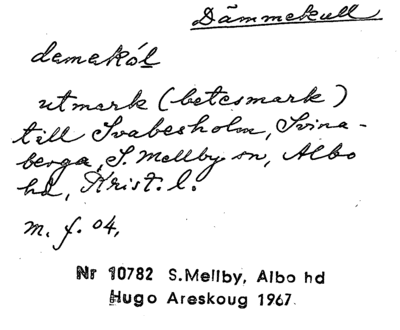 Dämmekull
demekól
utmark (betesmark)
till Svabesholm, Svina-
berga, S. Mellby sn, Albo
hd, Krist. l.
m. f. 04.
Nr 10782 S.Mellby, Albo hd
Hugo Areskoug 1967